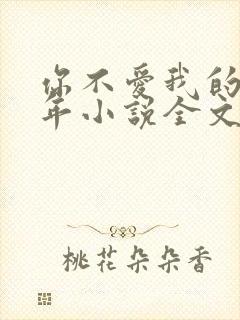 你不爱我的
年小說全文
桃花朵朵香